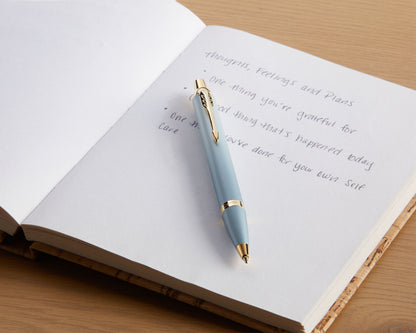 Thoughts, Feelings and Plans
• One thing you're grateful for
thing that's happened today
• One you've done for your own self
care